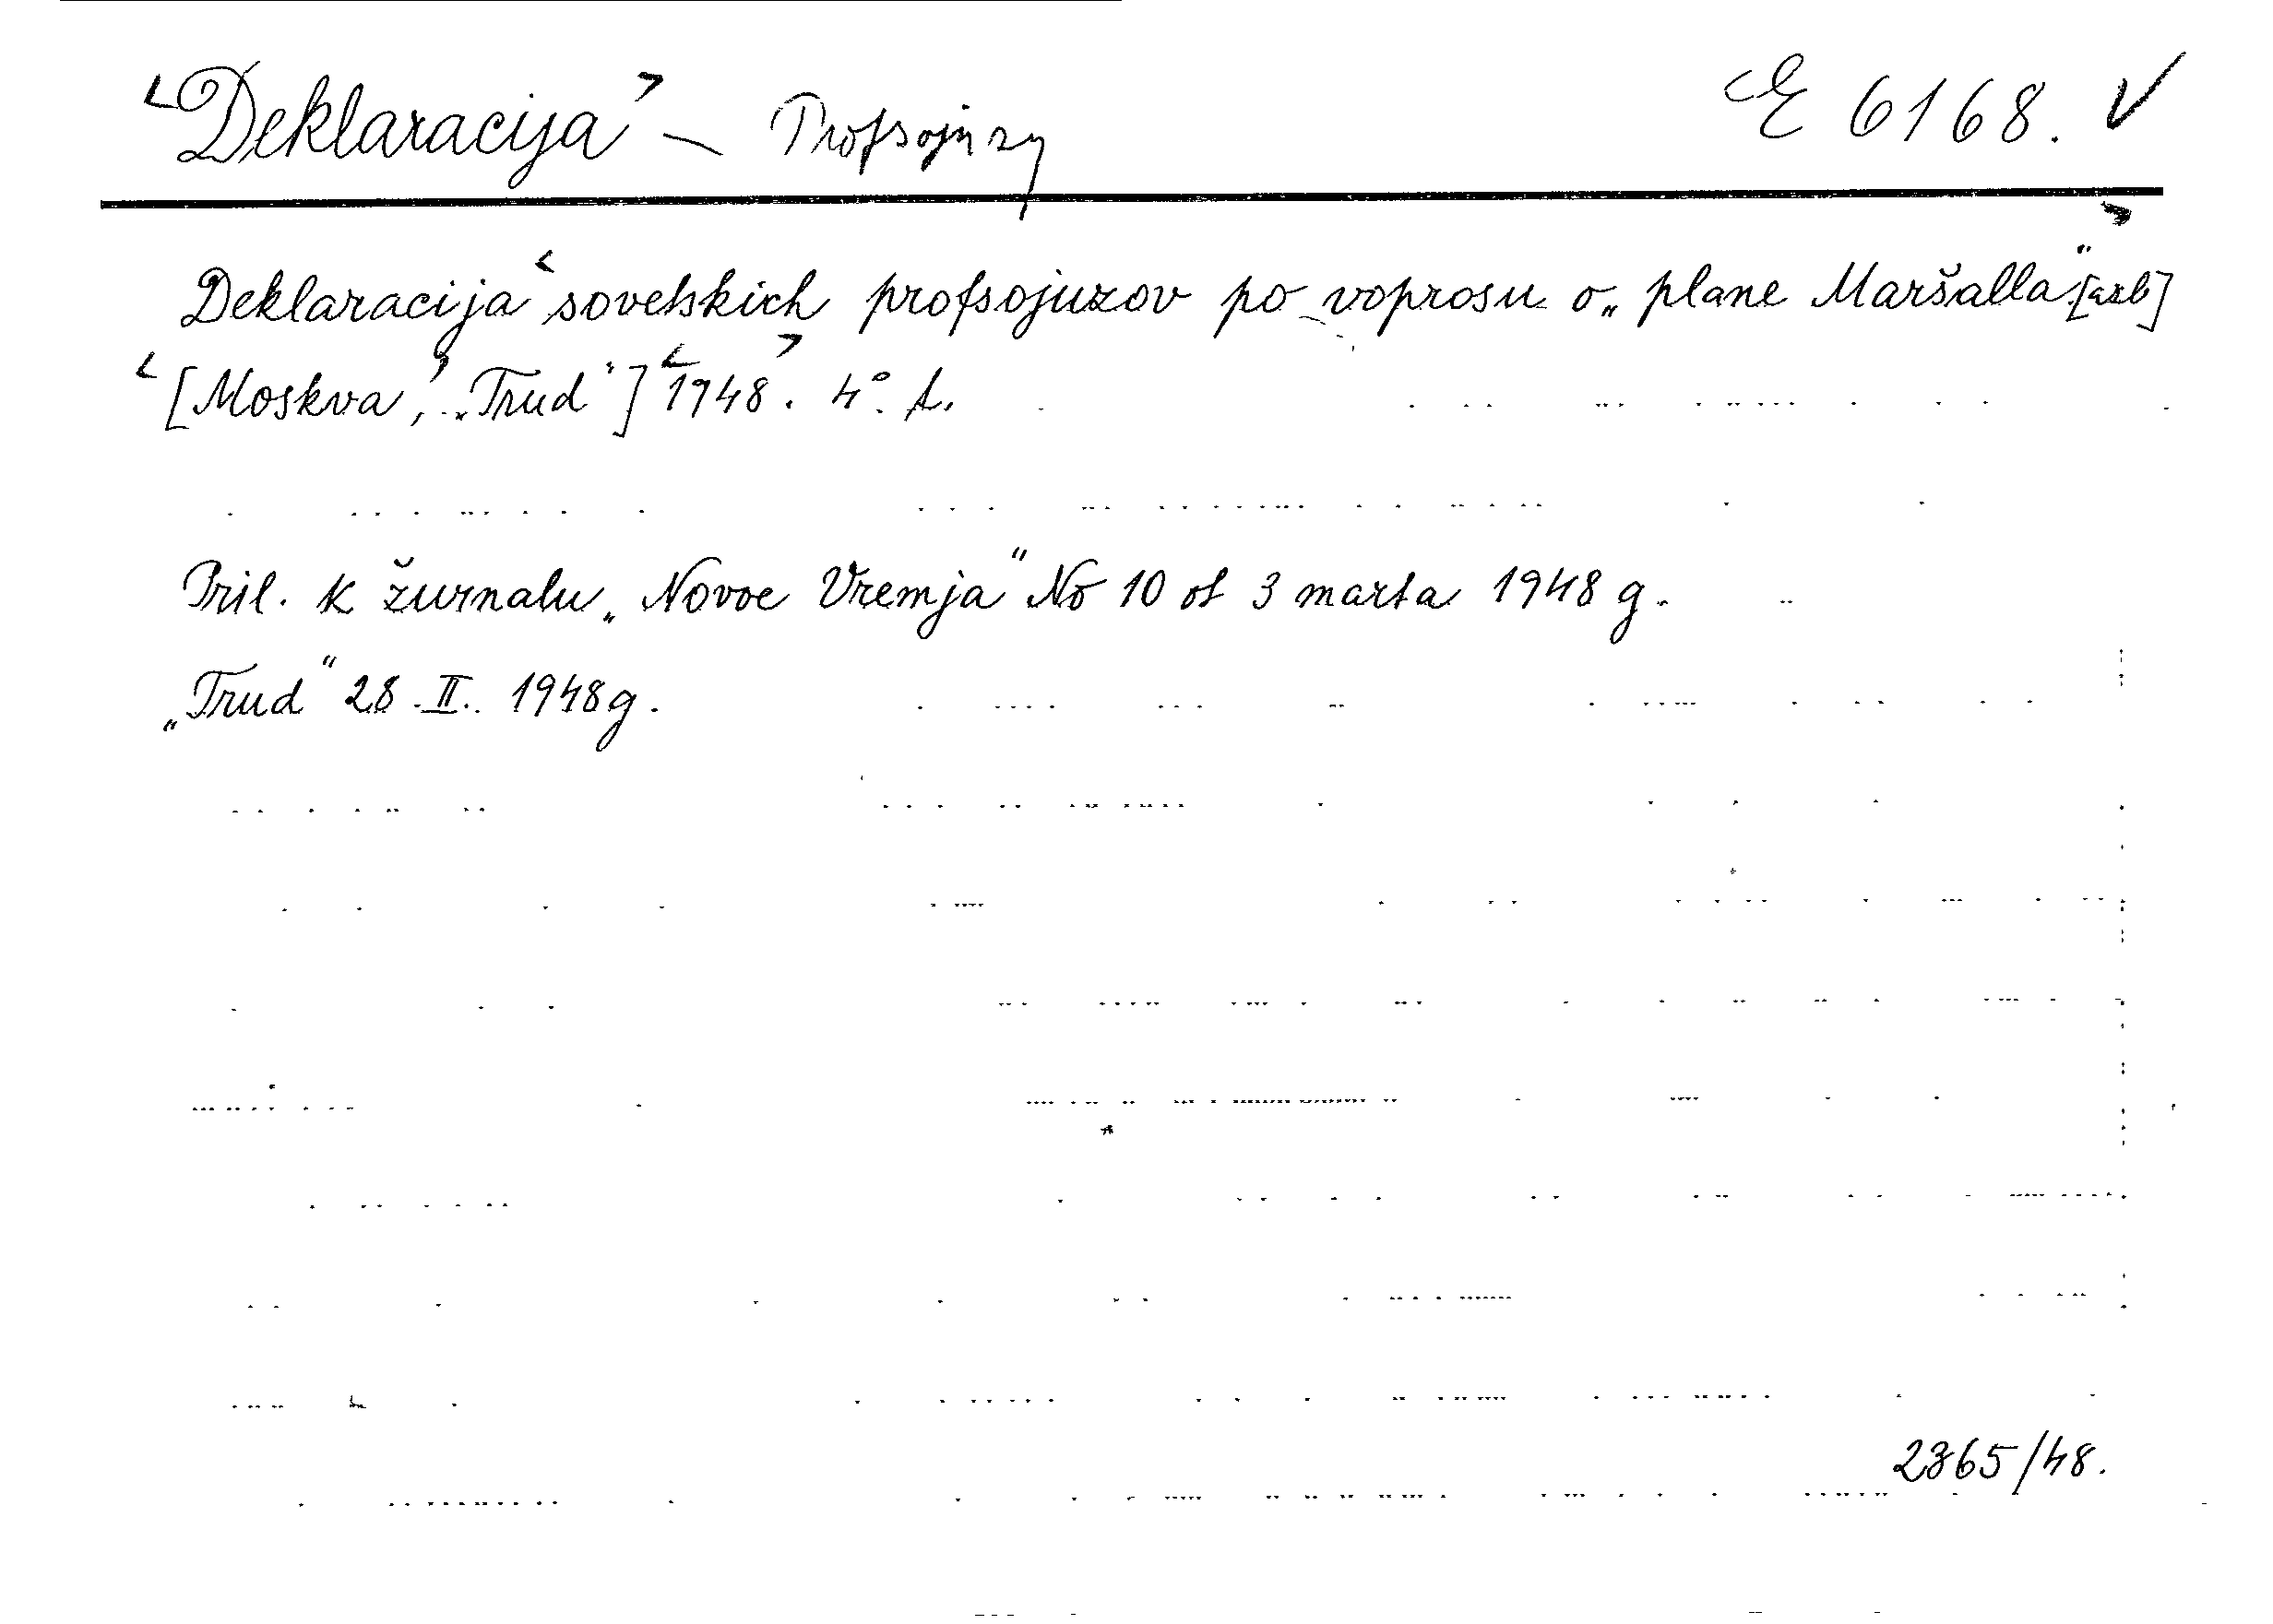 <Deklaracija> — Profsojuzy E 6168. ✓
Deklaracija <sovetskich profsojuzov po voprosu o „plane Maršalla“>
<[Moskva,> „Trud“] <1948>. 4°. f.
Pril. k žurnalu „Novoe Vremja“ No 10 ot 3 marta 1948 g.
„Trud“ 28. II. 1948 g.
2365/48.